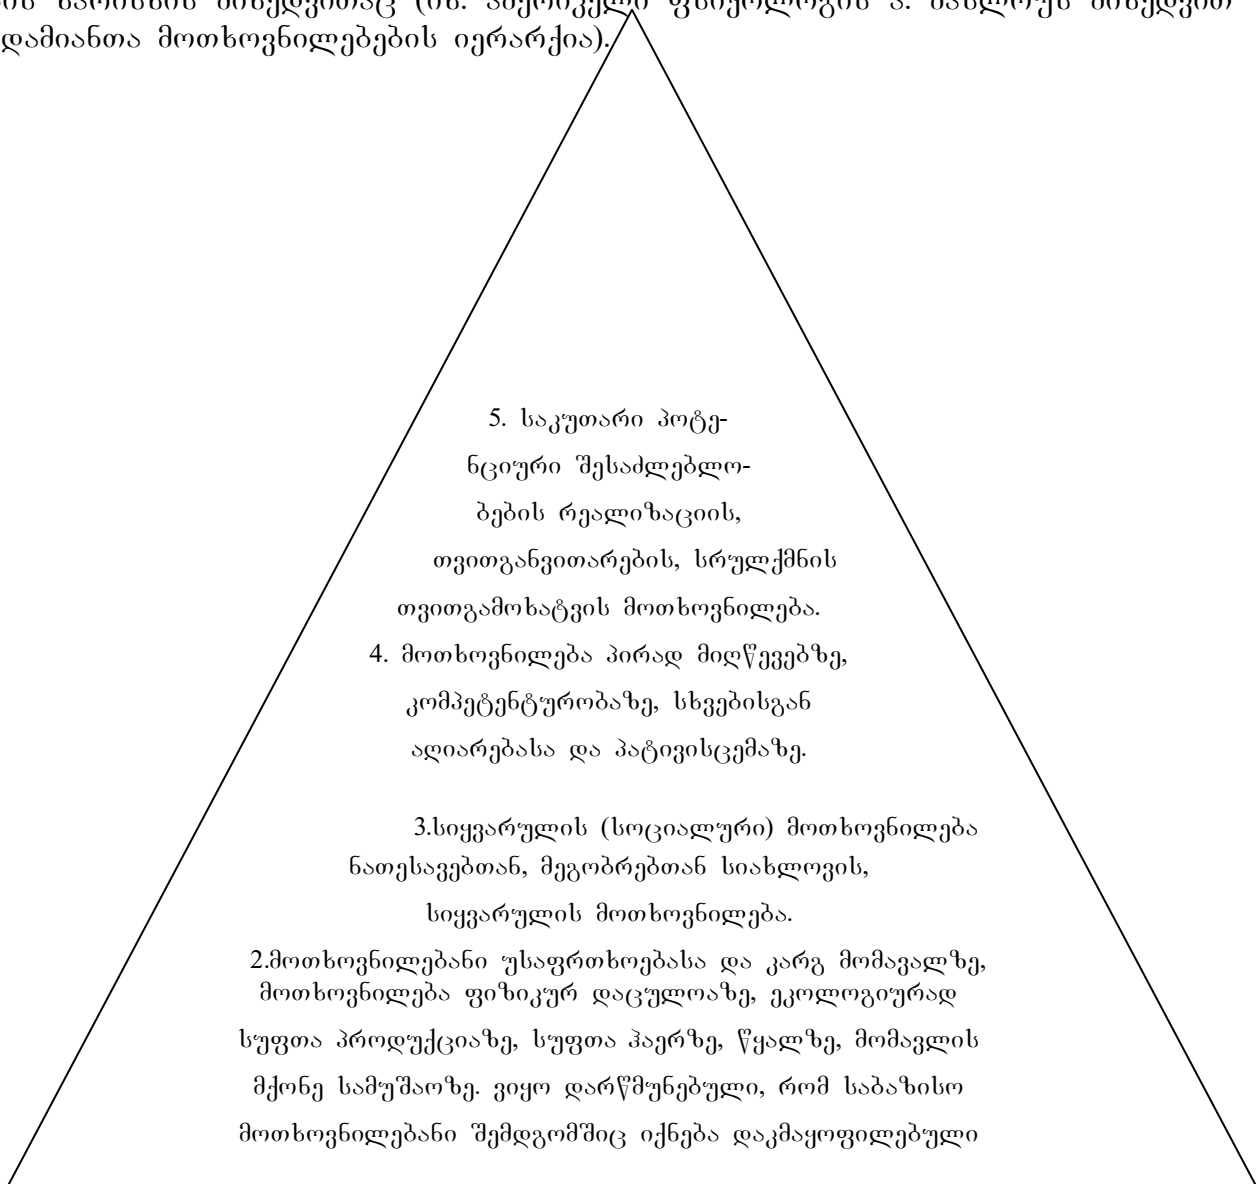 ის ხარისხის მიხედვითაც (იხ. ამერიკელი ფსიქოლოგის ა. მასლოუს მიხედვით
დამიანთა მოთხოვნილებების იერარქია).
5. საკუთარი პოტე-
ნციური შესაძლებლო-
ბების რეალიზაციის,
თვითგანვითარების, სრულქმნის
თვითგამოხატვის მოთხოვნილება.
4. მოთხოვნილება პირად მიღწევებზე,
კომპეტენტურობაზე, სხვებისგან
აღიარებასა და პატივისცემაზე.
3.სიყვარულის (სოციალური) მოთხოვნილება
ნათესავებთან, მეგობრებთან სიახლოვის,
სიყვარულის მოთხოვნილება.
2.მოთხოვნილებანი უსაფრთხოებასა და კარგ მომავალზე,
მოთხოვნილება ფიზიკურ დაცულოაზე, ეკოლოგიურად
სუფთა პროდუქციაზე, სუფთა ჰაერზე, წყალზე, მომავლის
მქონე სამუშაოზე. ვიყო დარწმუნებული, რომ საბაზისო
მოთხოვნილებანი შემდგომშიც იქნება დაკმაყოფილებული